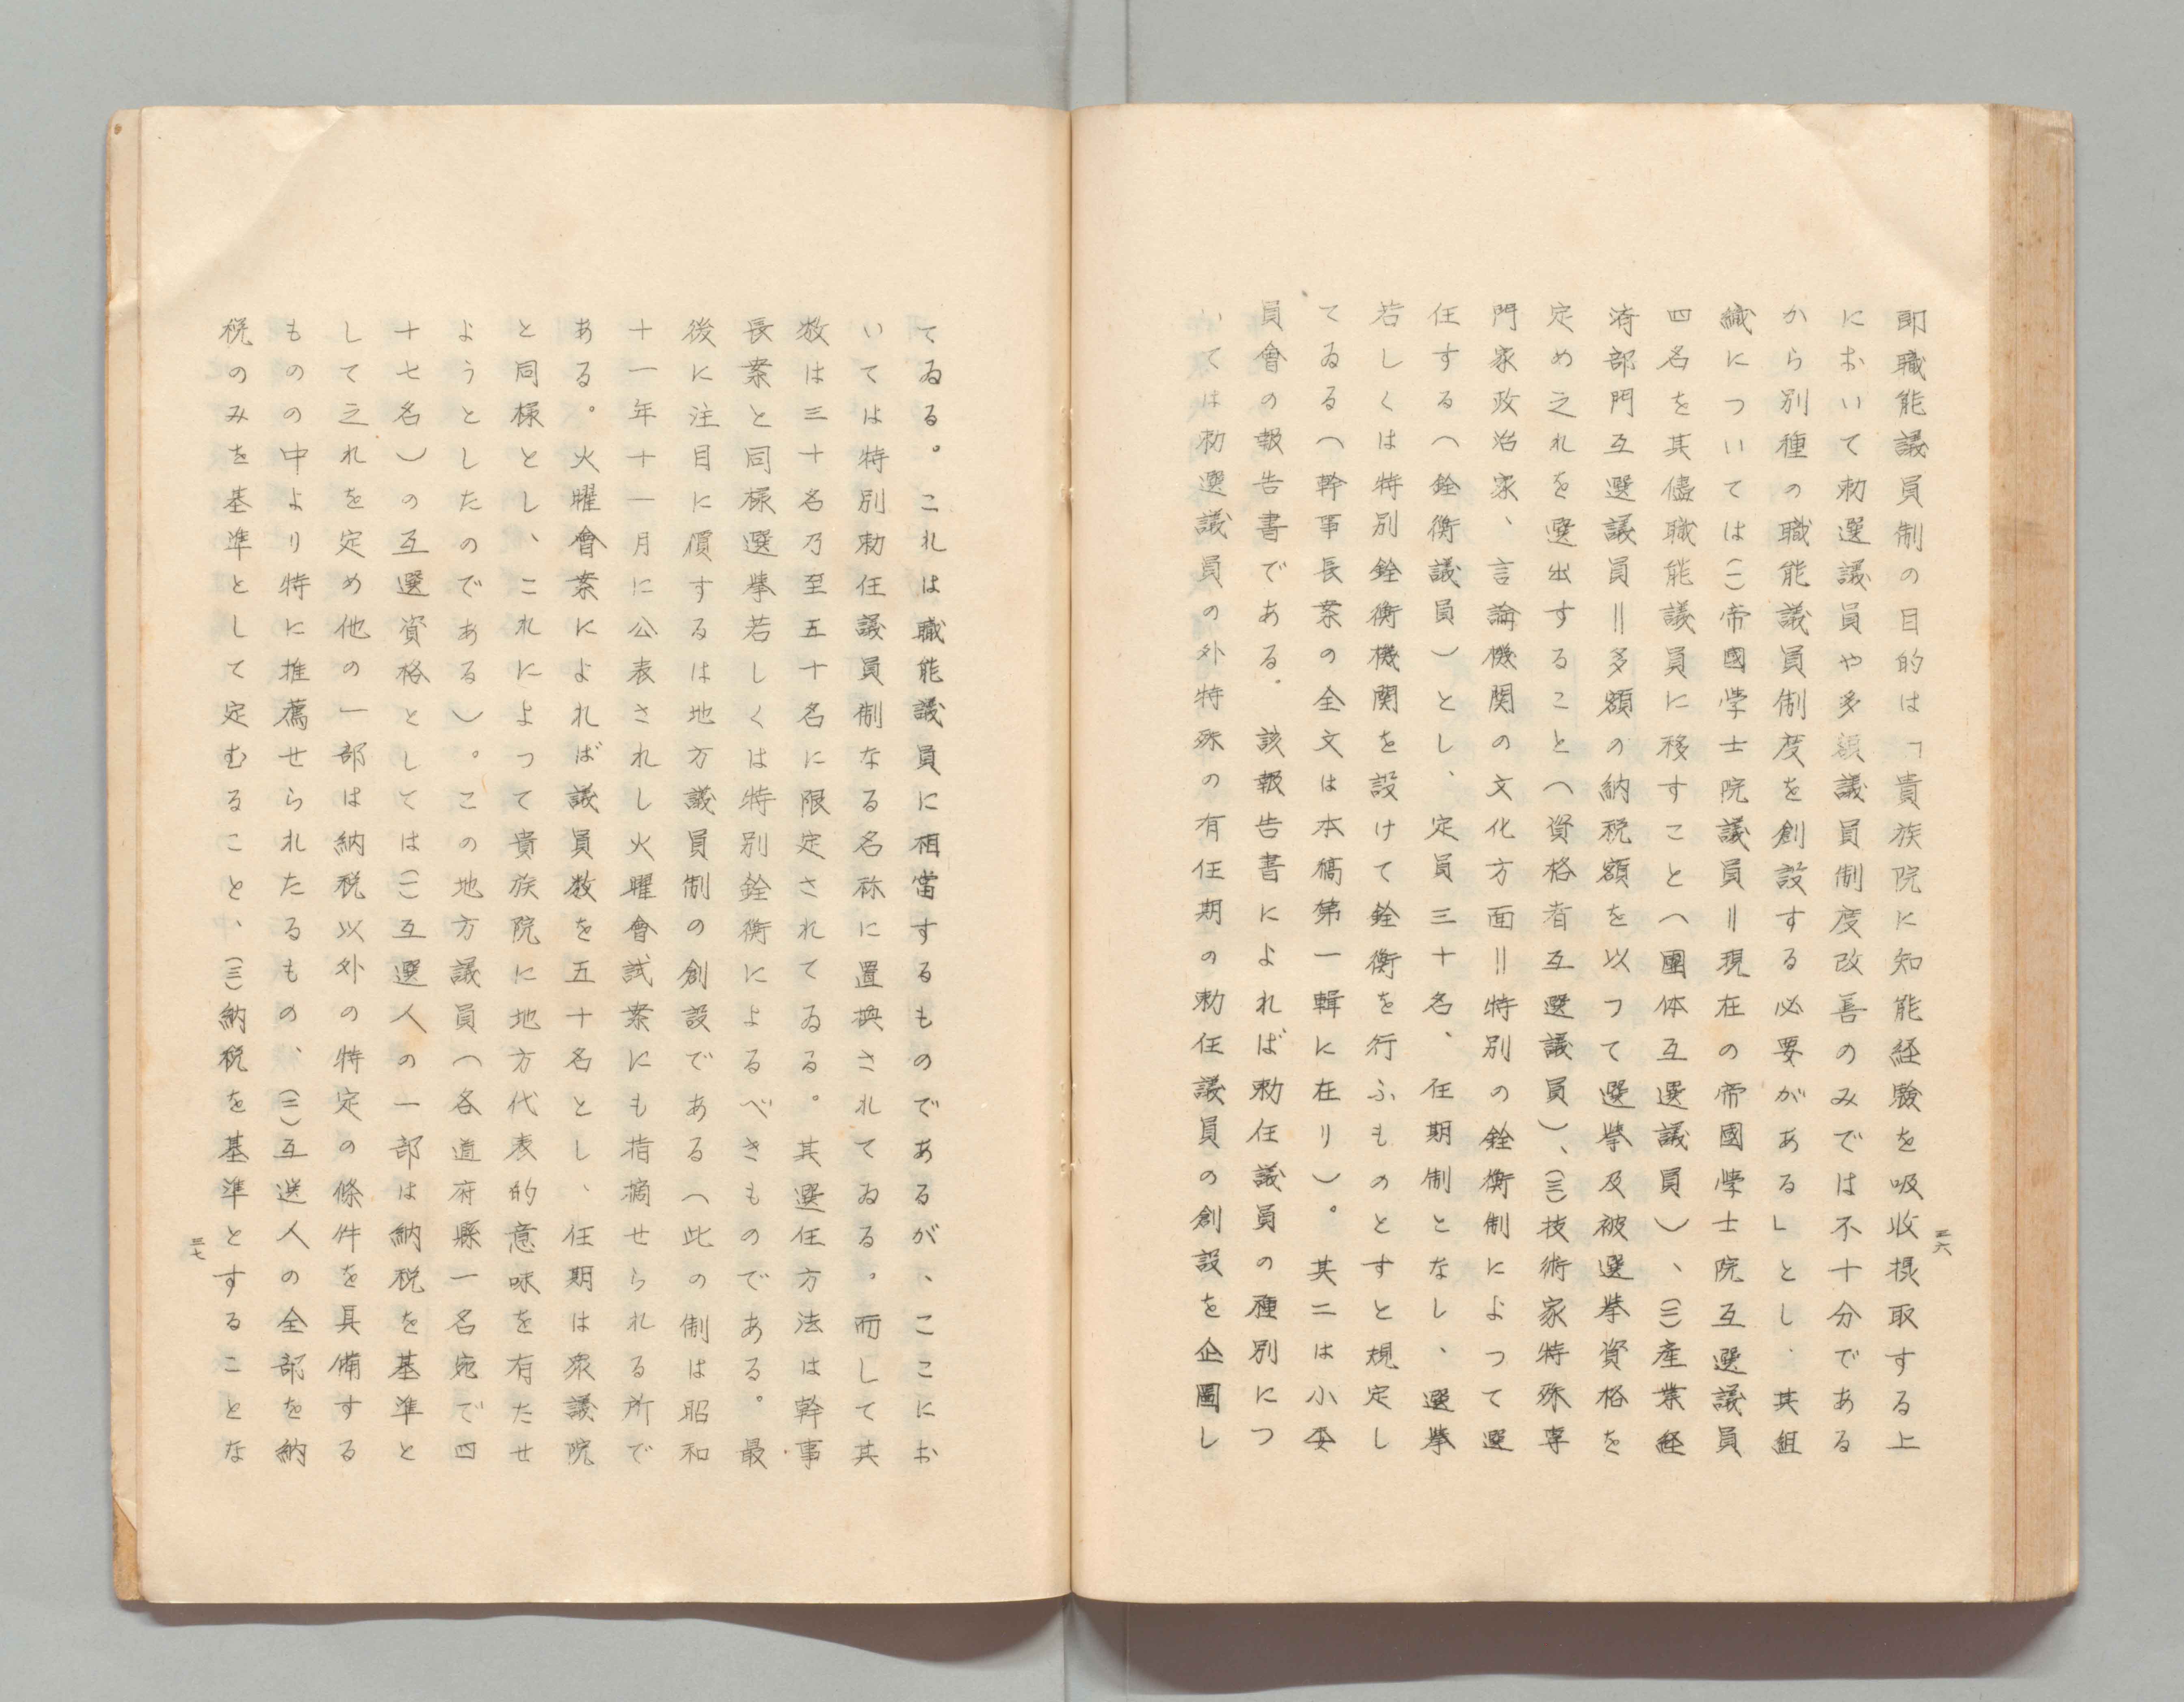 即職能議員制の目的は「貴族院に知能経験を吸收摂取する上
において勅選議員や多額議員制度改善のみでは不十分である
から別種の職能議員制度を創設する必要がある」とし、其組
織については㈠帝國学士院議員＝現在の帝國学士院互選議員
四名を其儘職能議員に移すこと（團体互選議員）、㈡産業経
済部門互選議員＝多額の納税額を以つて選挙及被選挙資格を
定め之れを選出すること（資格者互選議員）、㈢技術家特殊専
門家政治家、言論機関の文化方面＝特別の銓衡制によつて選
任する（銓衡議員）とし、定員三十名、任期制となし、選挙
若しくは特別銓衡機関を設けて銓衡を行ふものとすと規定し
てゐる（幹事長案の全文は本稿第一輯に在り）。其二は小委
員會の報告書である。該報告書によれば勅任議員の種別につ
いては勅選議員の外特殊の有任期の勅任議員の創設を企圖し
三六
てゐる。これは職能議員に相當するものであるが、ここにお
いては特別勅任議員制なる名称に置換されてゐる。而して其
数は三十名乃至五十名に限定されてゐる。其選任方法は幹事
長案と同様選挙若しくは特別銓衡によるべきものである。最
後に注目に價するは地方議員制の創設である（此の制は昭和
十一年十一月に公表されし火曜會試案にも指摘せられる所で
ある。火曜會案によれば議員数を五十名とし、任期は衆議院
と同様とし、これによつて貴族院に地方代表的意味を有たせ
ようとしたのである）。この地方議員（各道府縣一名宛で四
十七名）の互選資格としては㈠互選人の一部は納税を基準と
して之れを定め他の一部は納税以外の特定の條件を具備する
ものの中より特に推薦せられたるもの、㈡互選人の全部を納
税のみを基準として定むること、㈢納税を基準とすることな
三七